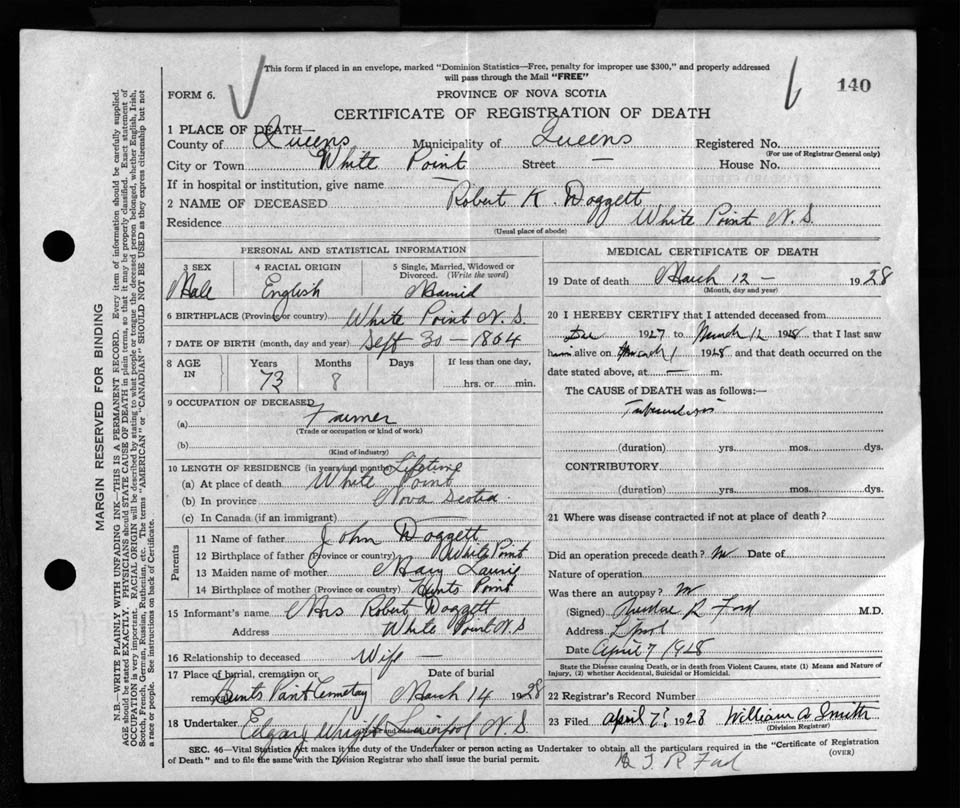 This form if placed in an envelope, marked "Dominion Statistics—Free, penalty for improper use $300," and properly addressed
will pass through the Mail "FREE"
140
FORM 6.
PROVINCE OF NOVA SCOTIA
CERTIFICATE OF REGISTRATION OF DEATH
1 PLACE OF DEATH—
County of Queens Municipality of Queens Registered No.
(For use of Registrar General only)
City or Town White Point Street — House No.
If in hospital or institution, give name —
2 NAME OF DECEASED Robert K. Doggett
Residence White Point N.S.
(Usual place of abode)
PERSONAL AND STATISTICAL INFORMATION
3 SEX
Male
4 RACIAL ORIGIN
English
5 Single, Married, Widowed or
Divorced. (Write the word)
Married
6 BIRTHPLACE (Province or country) White Point N.S.
7 DATE OF BIRTH (month, day and year) Sept 30 — 1864
8 AGE
IN
Years
73
Months
8
Days
If less than one day,
hrs. or min.
9 OCCUPATION OF DECEASED
(a) Farmer
(Trade or occupation or kind of work)
(b)
(Kind of industry)
10 LENGTH OF RESIDENCE (in years and months) Lifetime
(a) At place of death White Point
(b) In province Nova Scotia
(c) In Canada (if an immigrant)
Parents
11 Name of father John Doggett
12 Birthplace of father (Province or country) White Point
13 Maiden name of mother Mary
14 Birthplace of mother (Province or country) Hunts Point
15 Informant's name Mrs Robert Doggett
Address White Point N.S
16 Relationship to deceased Wife —
17 Place of burial, cremation or
removal Hunts Point Cemetery
Date of burial
March 14 1928
18 Undertaker Edgar Wright Liverpool N.S.
MEDICAL CERTIFICATE OF DEATH
19 Date of death March 12 — 1928
(Month, day and year)
20 I HEREBY CERTIFY that I attended deceased from
1927 to March 12 1928 that I last saw
him alive on March 1 1928 and that death occurred on the
date stated above, at — m.
The CAUSE of DEATH was as follows:—
Tuberculosis
(duration) yrs. mos. dys.
CONTRIBUTORY
(duration) yrs. mos. dys.
21 Where was disease contracted if not at place of death?
Did an operation precede death? no Date of
Nature of operation
Was there an autopsy? no
(Signed) R Ford M.D.
Address L'pool
Date April 7 1928
State the Disease causing Death, or in death from Violent Causes, state (1) Means and Nature of
Injury, (2) whether Accidental, Suicidal or Homicidal.
22 Registrar's Record Number
23 Filed April 7. 1928 William A Smith
(Division Registrar)
SEC. 46—Vital Statistics Act makes it the duty of the Undertaker or person acting as Undertaker to obtain all the particulars required in the "Certificate of Registration
of Death" and to file the same with the Division Registrar who shall issue the burial permit.
(OVER)
MARGIN RESERVED FOR BINDING
N.B.—WRITE PLAINLY, WITH UNFADING INK—THIS IS A PERMANENT RECORD. Every item of information should be carefully supplied.
AGE should be stated EXACTLY. PHYSICIANS should STATE CAUSE OF DEATH in plain terms, so that it may be properly classified. Exact statement of
OCCUPATION is very important. RACIAL ORIGIN will be described by stating to what people or tongue the deceased person belonged, whether English, Irish,
Scotch, French, German, Russian, Ruthenian, etc. The terms "AMERICAN" or "CANADIAN" SHOULD NOT BE USED as they express citizenship but not
a race or people. See instructions on back of Certificate.